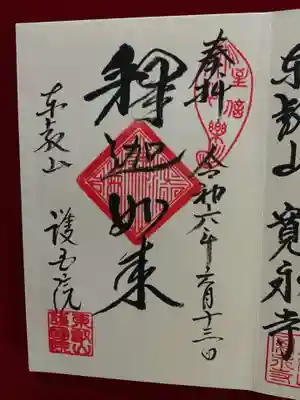 東叡山 寛永寺
奉拝 令和六年六月十三日
釋迦如来
東叡山 護国院